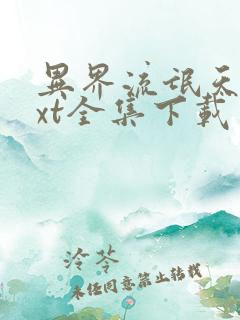 異界流氓天
xt全集下載
泠苓
未经同意禁止转载